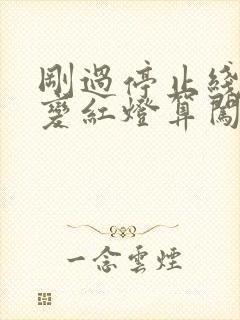 剛過停止綫
變紅燈算闖
一念雲煙